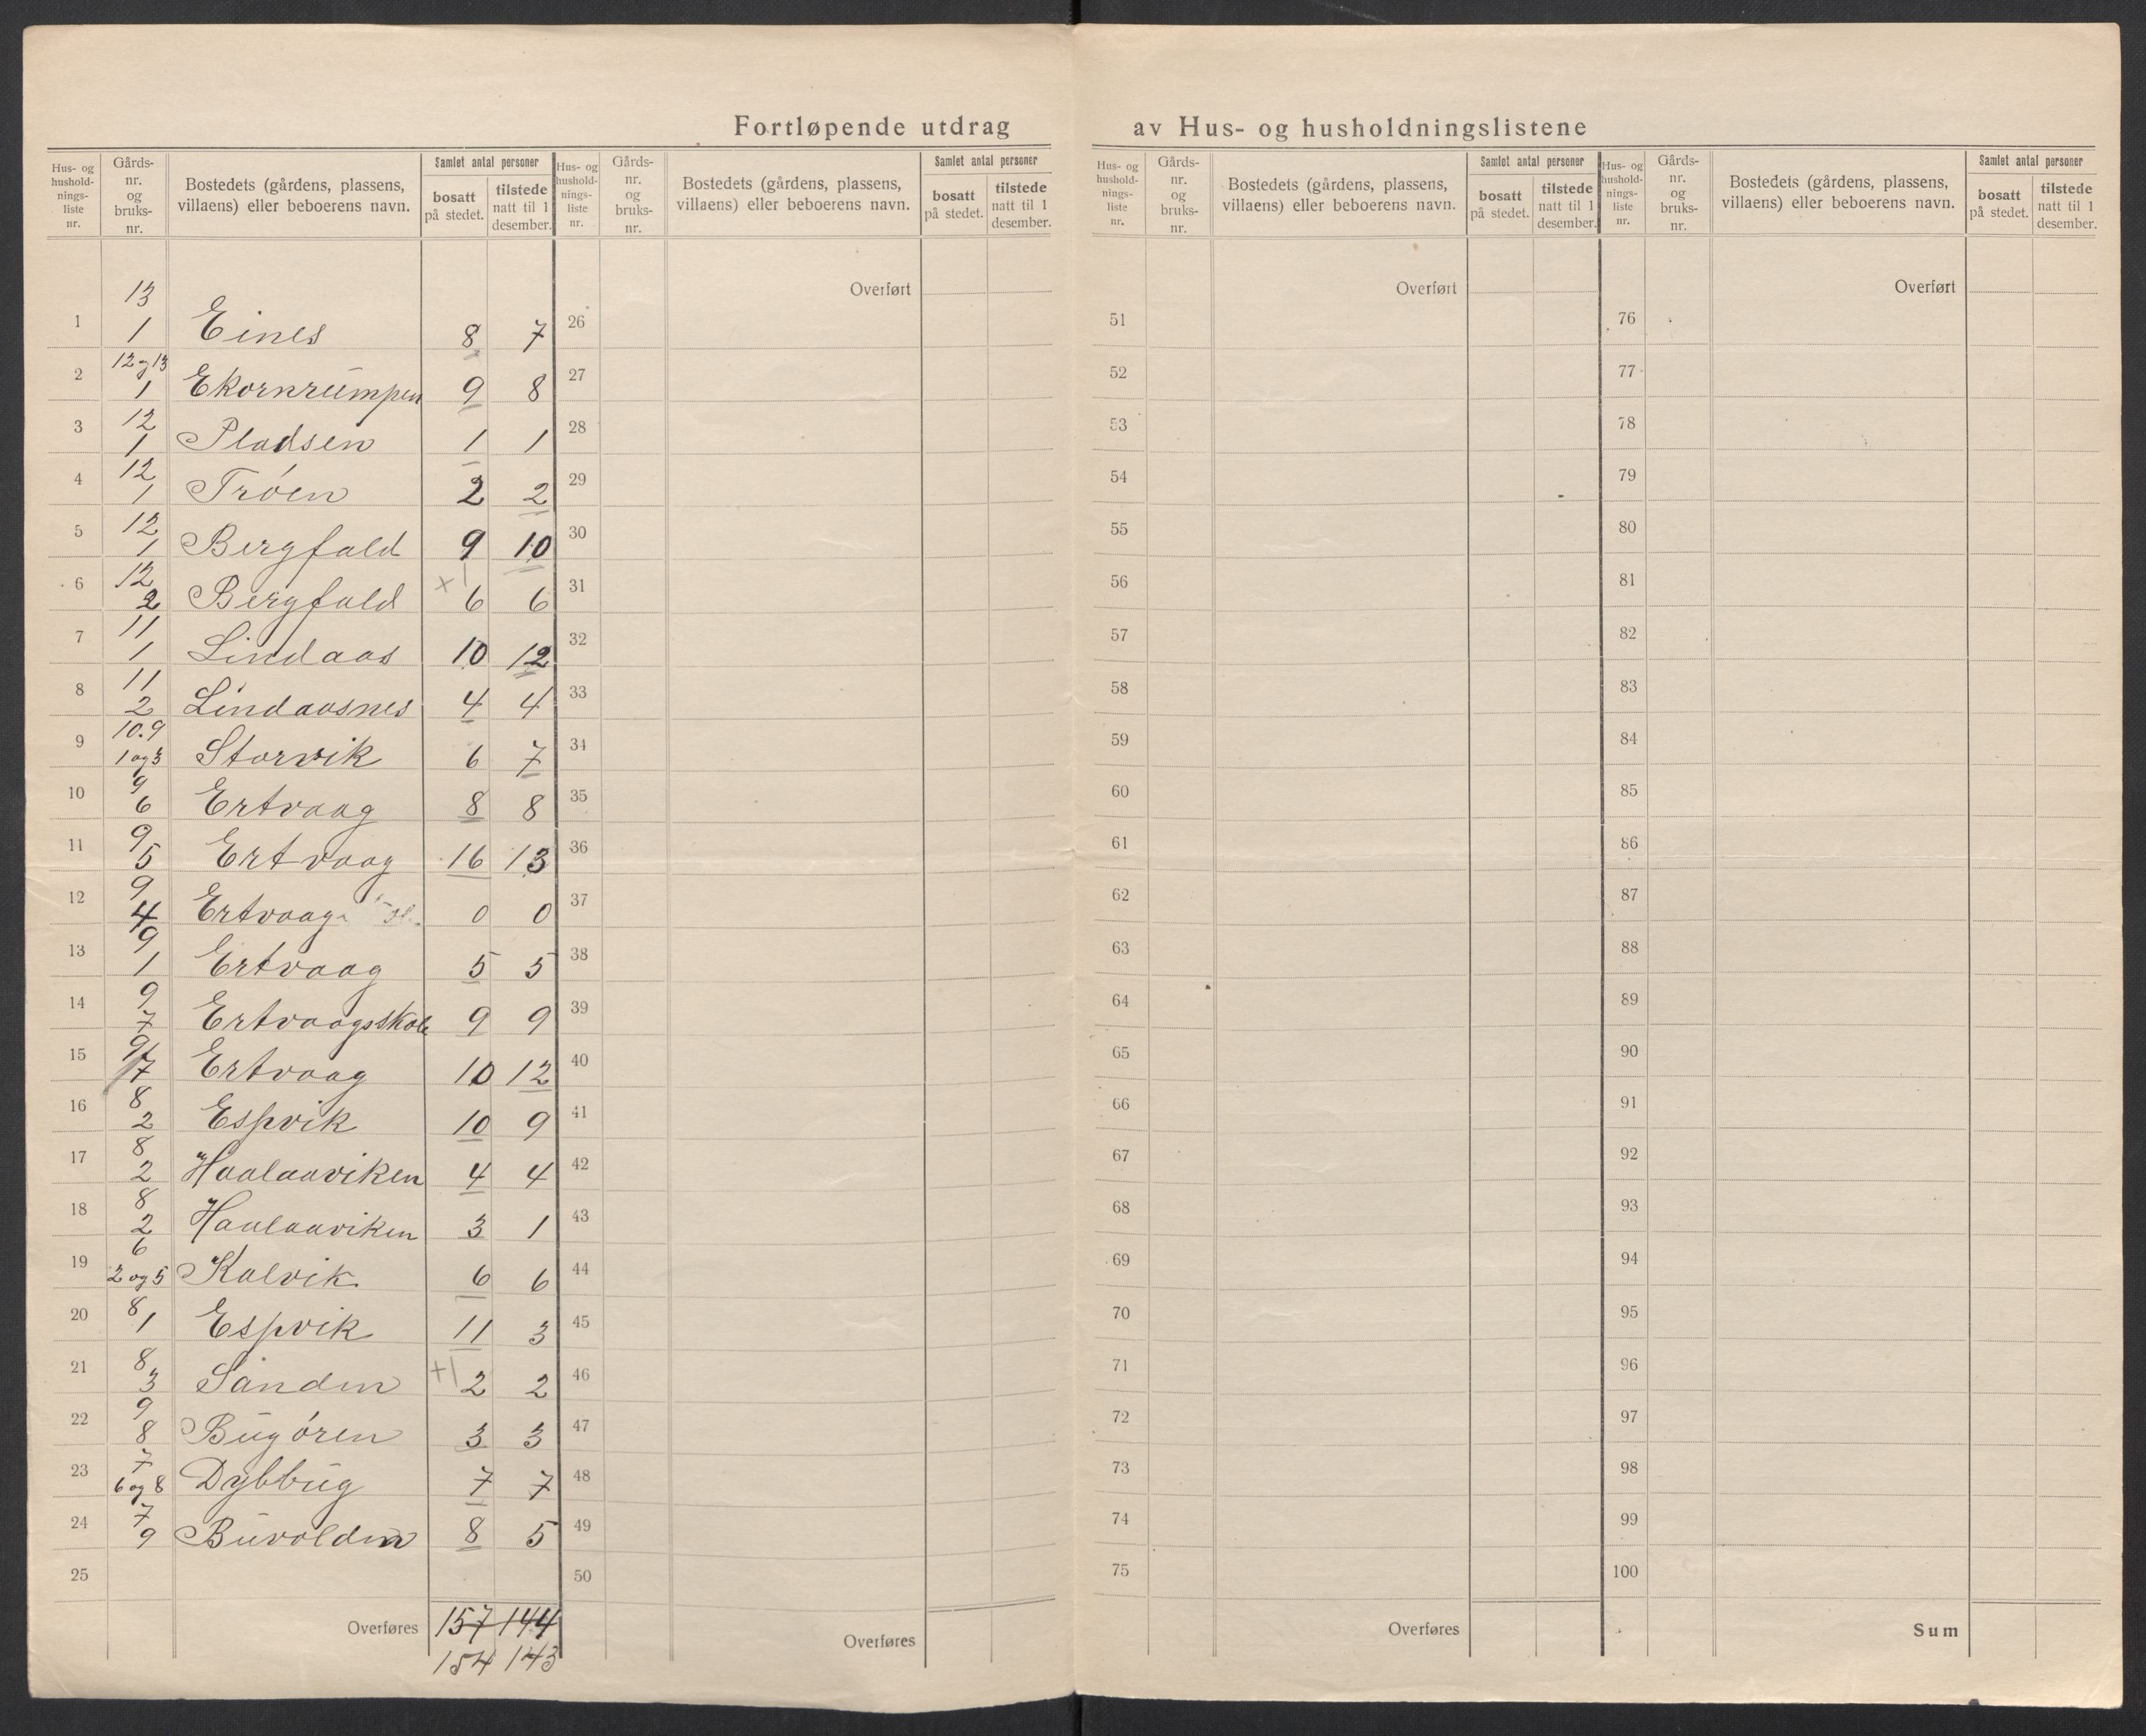 Fortløpende utdrag av Hus- og husholdningslistene
Hus- og husholdnings-liste nr. | Gårds-nr. og bruks-nr. | Bostedets (gårdens, plassens, villaens) eller beboerens navn. | Samlet antal personer | bosatt på stedet. | tilstede natt til 1 desember.
Hus- og husholdnings-liste nr. | Gårds-nr. og bruks-nr. | Bostedets (gårdens, plassens, villaens) eller beboerens navn. | Samlet antal personer | bosatt på stedet. | tilstede natt til 1 desember.
Hus- og husholdnings-liste nr. | Gårds-nr. og bruks-nr. | Bostedets (gårdens, plassens, villaens) eller beboerens navn. | Samlet antal personer | bosatt på stedet. | tilstede natt til 1 desember.
Hus- og husholdnings-liste nr. | Gårds-nr. og bruks-nr. | Bostedets (gårdens, plassens, villaens) eller beboerens navn. | Samlet antal personer | bosatt på stedet. | tilstede natt til 1 desember.
1 | 13 1 | Eines | 8 | 7
2 | 12 og 13 1 | Ekornrumpen | 9 | 8
3 | 12 1 | Pladsen | 1 | 1
4 | 12 1 | Trøen | 2 | 2
5 | 12 1 | Bergfald | 9 | 10
6 | 12 2 | Bergfald | x1 6 | 6
7 | 11 1 | Lindaas | 10 | 12
8 | 11 2 | Lindaasnes | 4 | 4
9 | 10.9 1 og 3 | Storvik | 6 | 7
10 | 9 6 | Ertvaag | 8 | 8
11 | 9 5 | Ertvaag | 16 | 13
12 | 9 4 | Ertvaag | 0 | 0
13 | 9 1 | Ertvaag | 5 | 5
14 | 9 7 | Ertvaagsskole | 9 | 9
15 | 9 7 | Ertvaag | 10 | 12
16 | 8 2 | Espvik | 10 | 9
17 | 8 2 | Haalaaviken | 4 | 4
18 | 8 2 | Haalaaviken | 3 | 1
19 | 6 2 og 5 | Kalvik | 6 | 6
20 | 8 1 | Espvik | 11 | 3
21 | 8 3 | Sanden | +1 2 | 2
22 | 9 8 | Bugøren | 3 | 3
23 | 7 6 og 8 | Dybbug | 7 | 7
24 | 7 9 | Buvolden | 8 | 5
25
Overføres 157 144
154 143
Overført
26
27
28
29
30
31
32
33
34
35
36
37
38
39
40
41
42
43
44
45
46
47
48
49
50
Overføres
Overført
51
52
53
54
55
56
57
58
59
60
61
62
63
64
65
66
67
68
69
70
71
72
73
74
75
Overføres
Overført
76
77
78
79
80
81
82
83
84
85
86
87
88
89
90
91
92
93
94
95
96
97
98
99
100
Sum